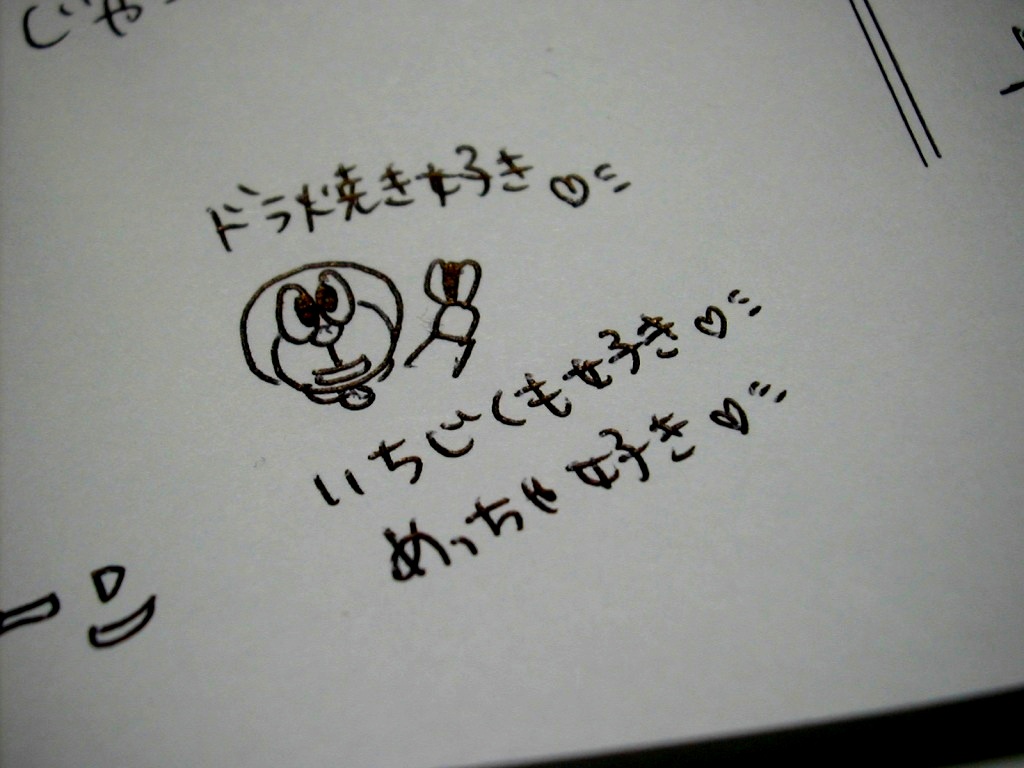 じゃ
ドラ焼き好き♡
いちじくも好き♡
めっちゃ好き♡
ン